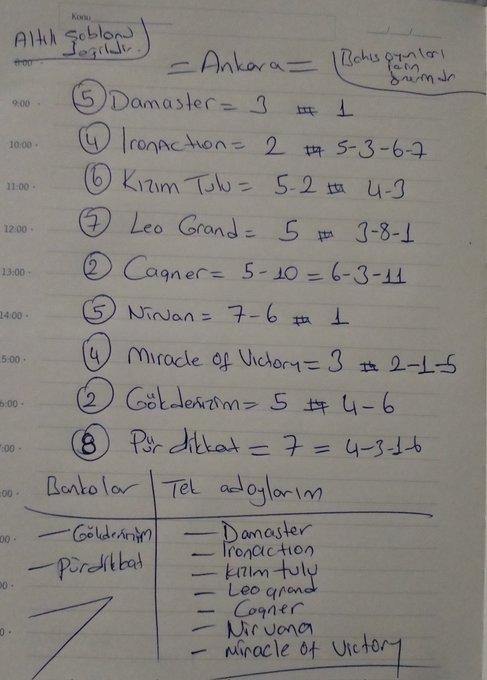 Konu
Altılı Şablonu
değildir.
= Ankara =
Bahis oyunları
için
8:00
9:00 5 Damaster = 3 # 1
10:00 4 Ironaction = 2 # 5-3-6-7
11:00 6 Kızım Tulu = 5-2 # 4-3
12:00 7 Leo Grand = 5 # 3-8-1
13:00 2 Cagner = 5-10 = 6-3-11
14:00 5 Nirvan = 7-6 # 1
5:00 4 Miracle of Victory = 3 # 2-1-5
6:00 2 Gökdenizim = 5 # 4-6
7:00 8 Pür dikkat = 7 = 4-3-1-6
:00 Bankolar Tek adaylarım
00 — Gökdenizim — Damaster
— Ironaction
— Pürdikkat — Kızım tulu
00 — Leo grand
— Cagner
0 — Nirvana
— Miracle of Victory